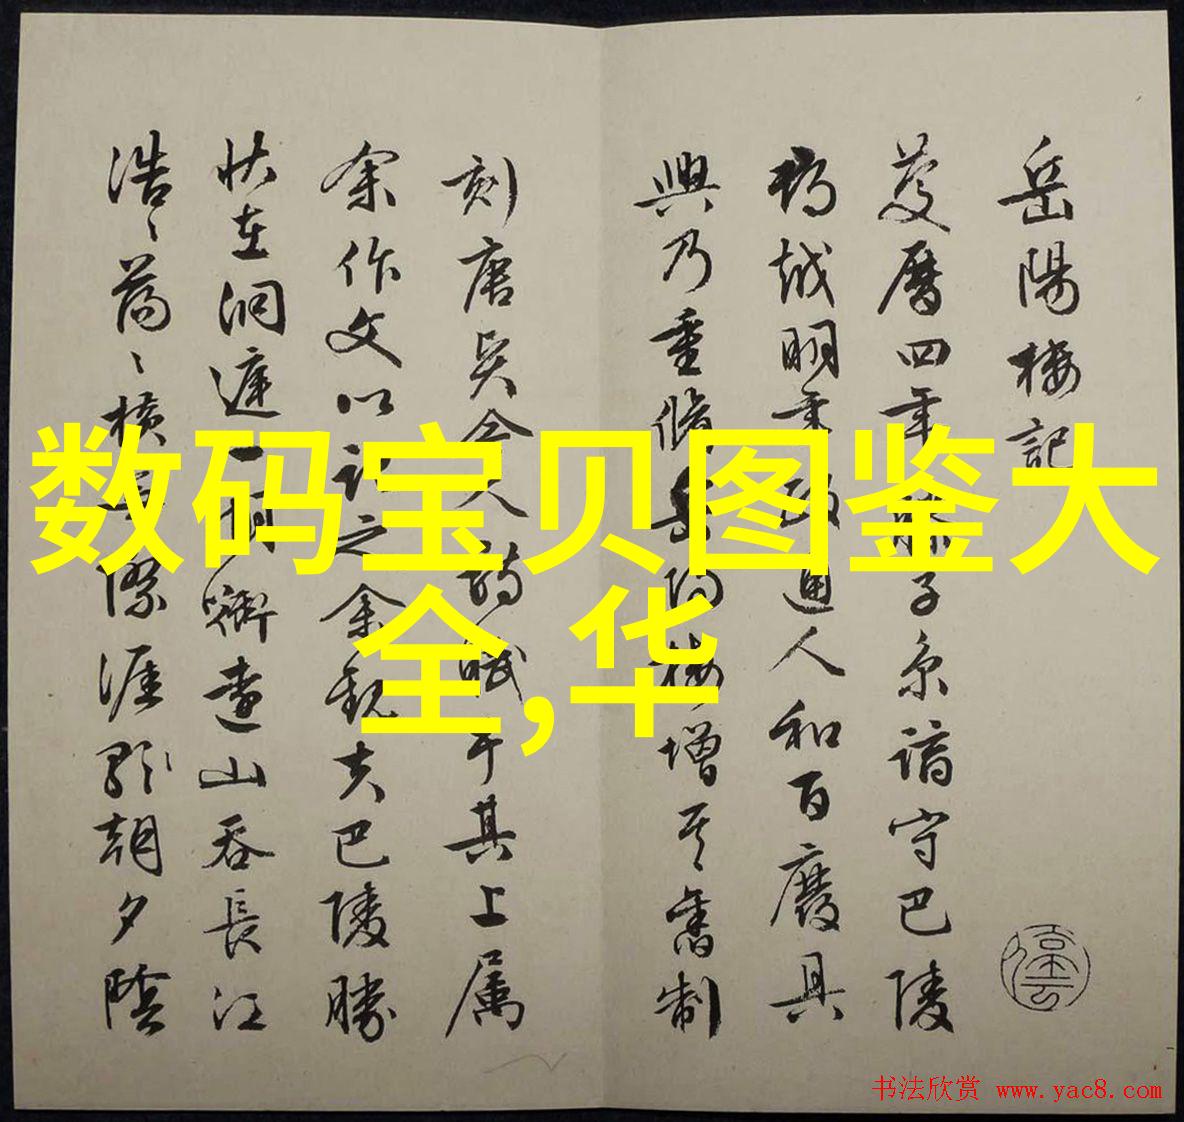 岳陽樓記
慶曆四年滕子京謫守巴陵
郡越明年政通人和百廢具
興乃重修岳陽樓增其舊制
刻唐賢今人詩賦于其上属
余作文以記之余觀夫巴陵勝
状在洞庭一湖銜遠山吞長江
浩〻蕩〻横無際涯朝夕陰
数码宝贝图鉴大
全,华
书法欣赏 www.yac8.com